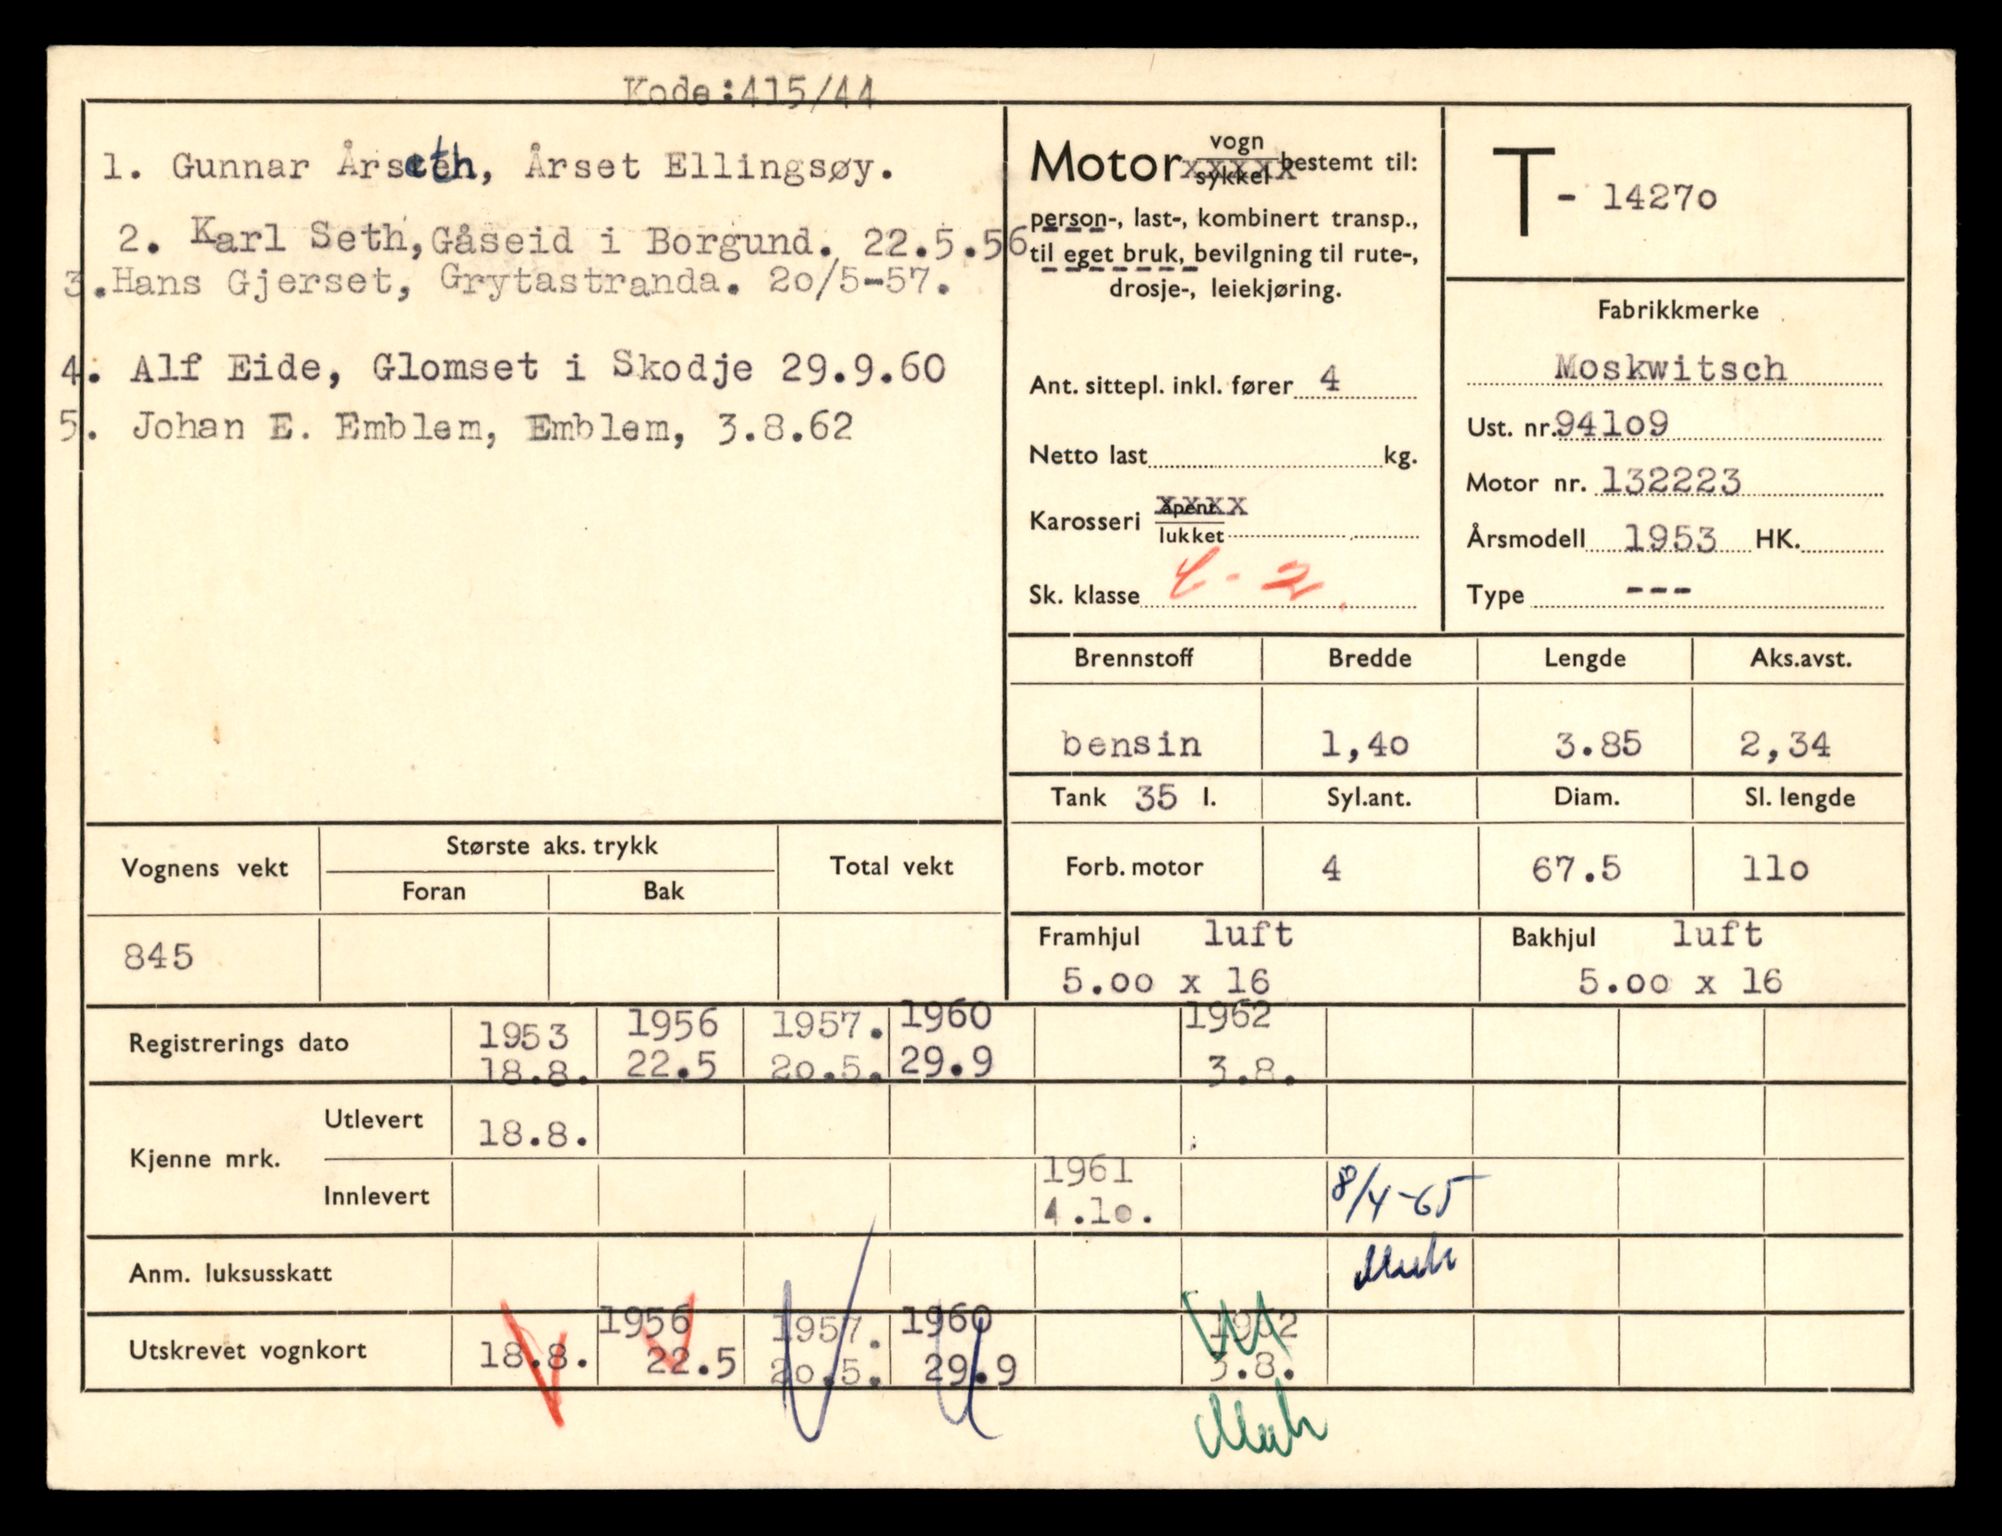 Kode:415/44
1. Gunnar Årseth, Årset Ellingsøy.
2. Karl Seth, Gåseid i Borgund. 22.5.56
3. Hans Gjerset, Grytastranda. 20/5-57.
4. Alf Eide, Glomset i Skodje 29.9.60
5. Johan E. Emblem, Emblem, 3.8.62
Motor vogn/sykkel bestemt til:
person-, last-, kombinert transp.,
til eget bruk, bevilgning til rute-,
drosje-, leiekjøring.
Ant. sittepl. inkl. fører 4
Netto last kg.
Karosseri åpent/lukket
Sk. klasse
T - 14270
Fabrikkmerke
Moskwitsch
Ust. nr. 94109
Motor nr. 132223
Årsmodell 1953 HK.
Type ---
Brennstoff Bredde Lengde Aks.avst.
bensin 1,40 3.85 2,34
Tank 35 l. Syl.ant. Diam. Sl. lengde
Forb. motor 4 67.5 110
Framhjul luft Bakhjul luft
5.00 x 16 5.00 x 16
Vognens vekt Største aks. trykk Total vekt
Foran Bak
845
Registrerings dato 1953 1956 1957. 1960 1962
18.8. 22.5 20.5. 29.9 3.8.
Kjenne mrk. Utlevert 18.8.
Innlevert 1961 8/4-65
4.10.
Anm. luksusskatt
Utskrevet vognkort 1956 1957. 1960 1962
18.8. 22.5 20.5. 29.9 3.8.